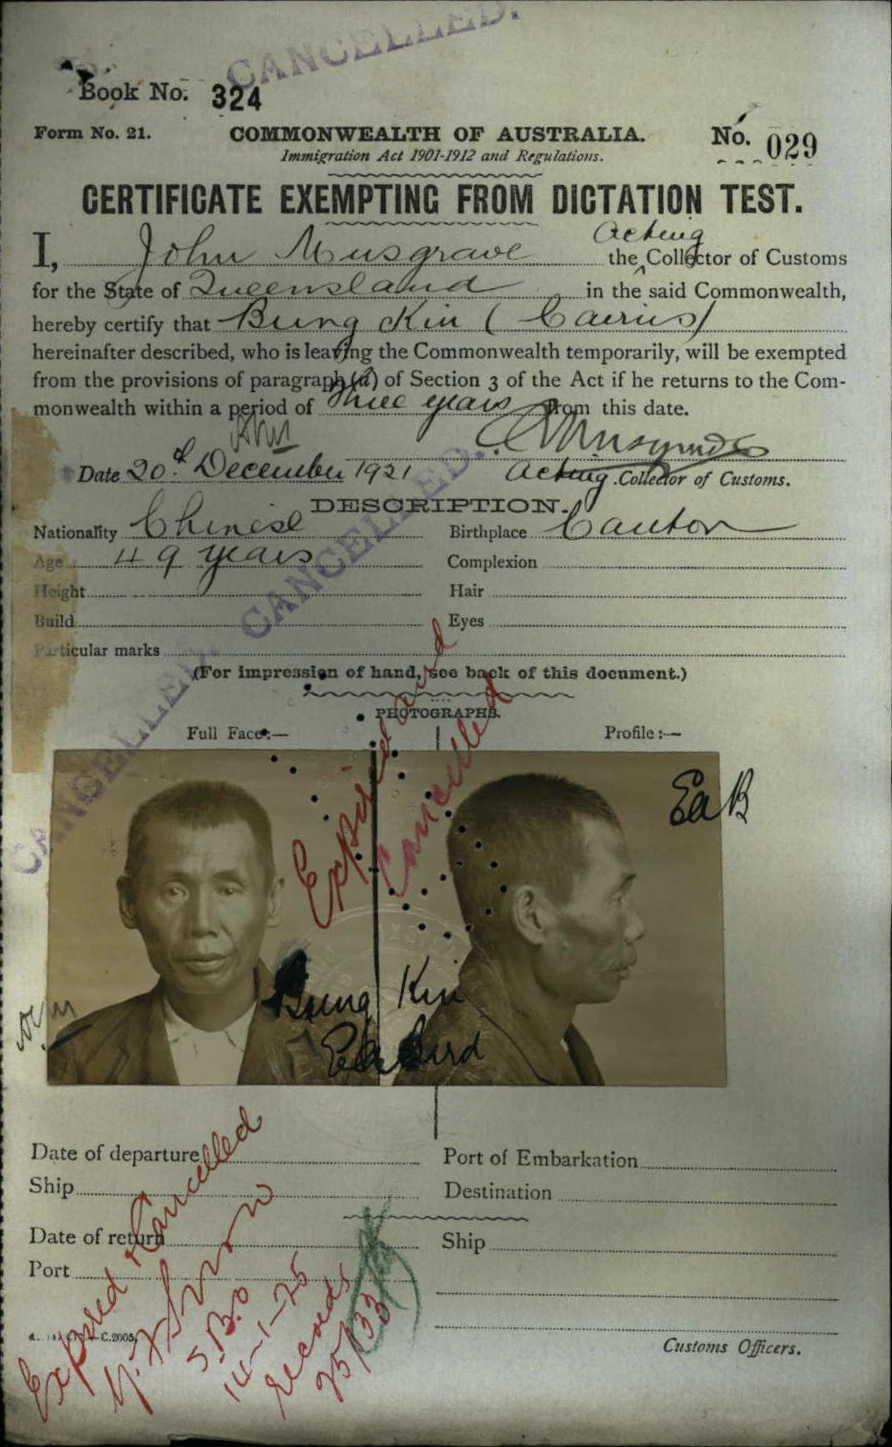 CANCELLED.
Book No. 324
Form No. 21. COMMONWEALTH OF AUSTRALIA. No. 029
Immigration Act 1901-1912 and Regulations.
CERTIFICATE EXEMPTING FROM DICTATION TEST.
Acting
I, John Musgrave the Collector of Customs
for the State of Queensland in the said Commonwealth,
hereby certify that Bung Kin (Cairns)
hereinafter described, who is leaving the Commonwealth temporarily, will be exempted
from the provisions of paragraph (a) of Section 3 of the Act if he returns to the Com-
monwealth within a period of three years from this date.
Date 20th December 1921 Acting Collector of Customs.
DESCRIPTION.
Nationality Chinese Birthplace Canton
Age 49 years Complexion
Height Hair
Build Eyes
Particular marks
CANCELLED. CANCELLED.
(For impression of hand, see back of this document.)
PHOTOGRAPHS.
Full Face:— Profile:—
Expired and
Cancelled
EaB
Bung Kin
Ea Bird
Date of departure Port of Embarkation
Ship Destination
Date of return Ship
Port
C.2005
Customs Officers.
Expired & Cancelled
S.B.O
14-1-25
Records
25/33